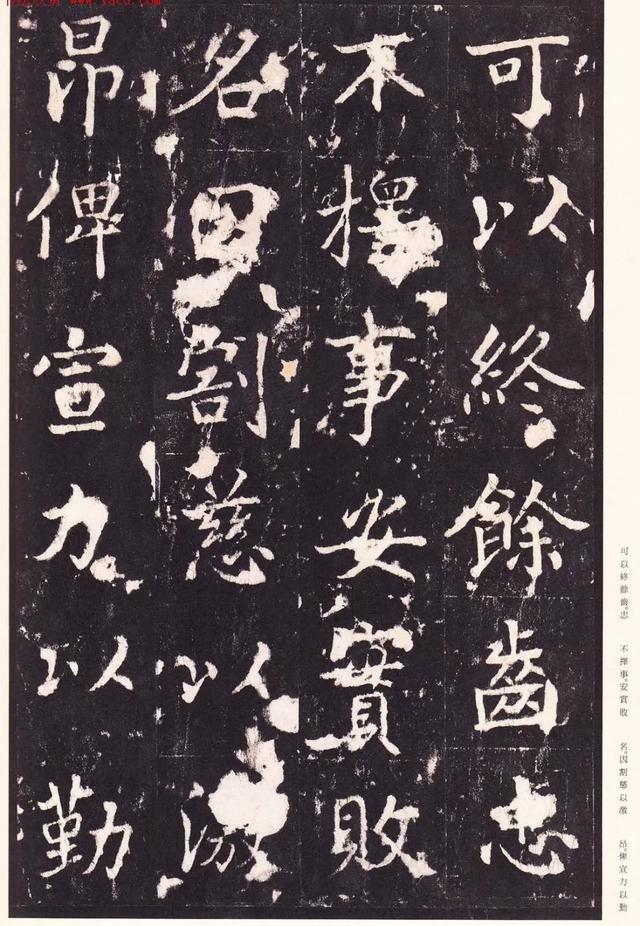 可以終餘齒忠
不擇事安實敗
名因割慈以激
昂俾宣力以勤
可以終餘齒。忠
不擇事。安實敗
名。因割慈以激
昂。俾宣力以勤